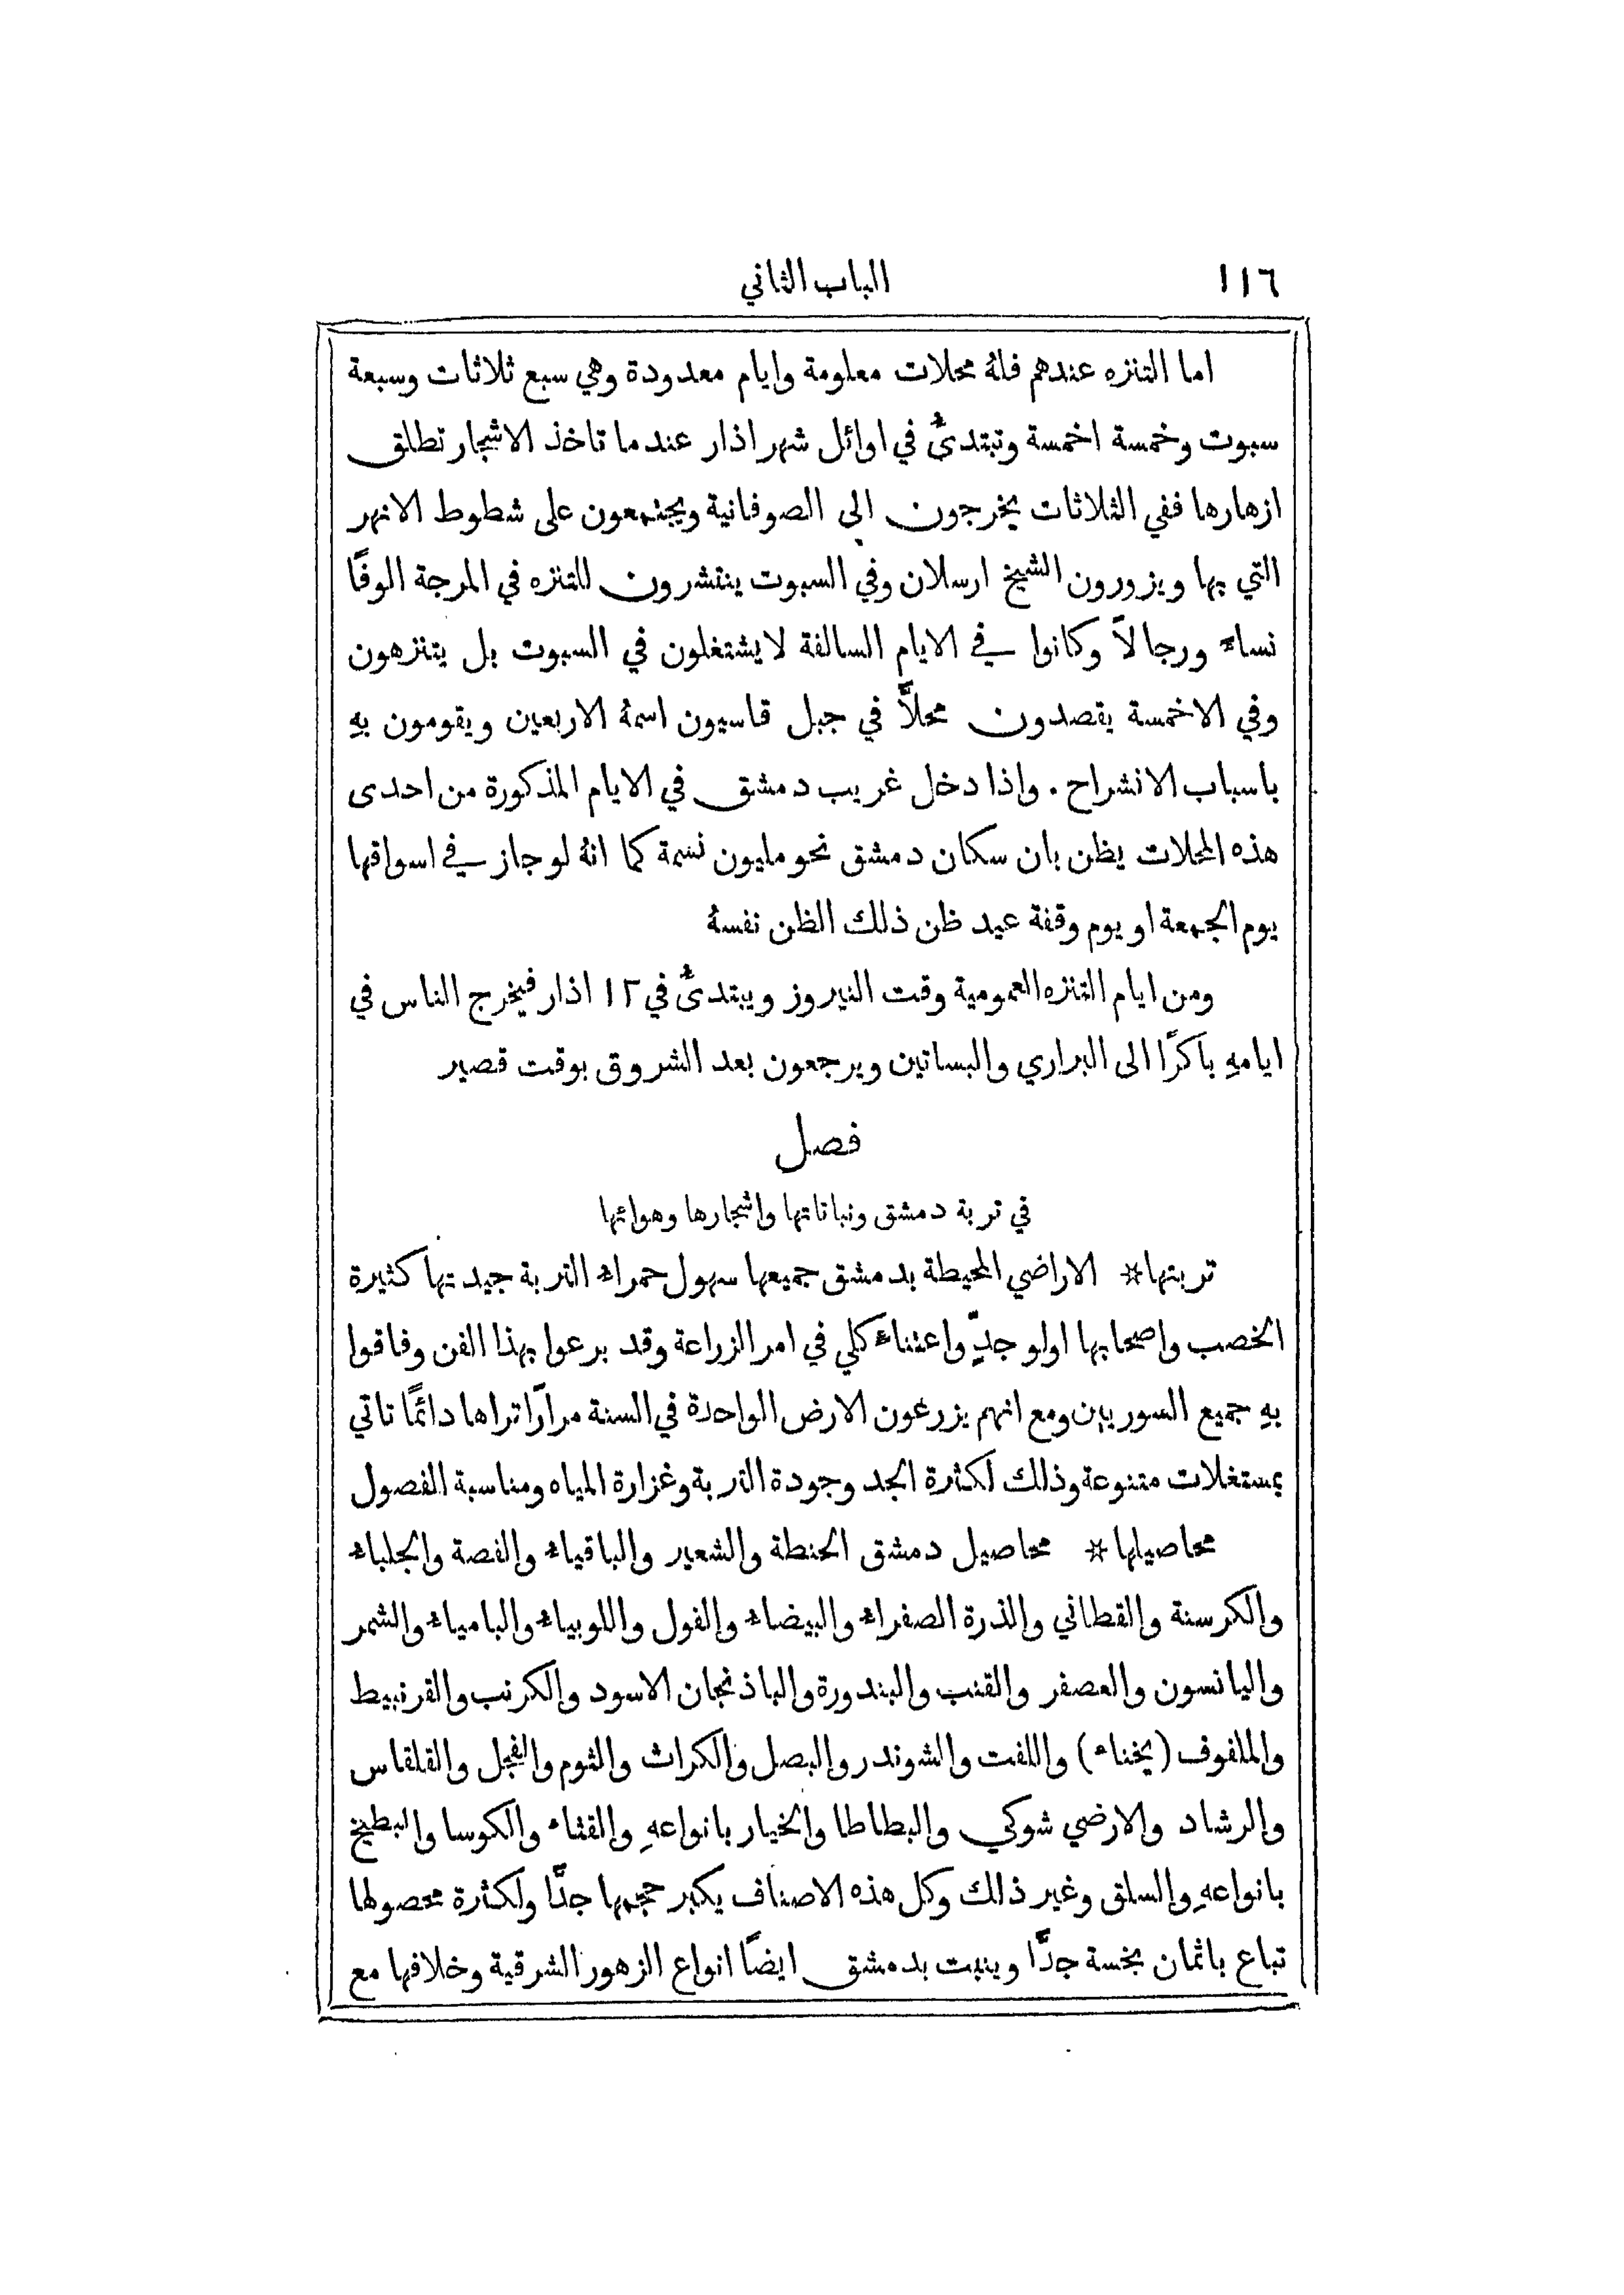 ١١٦ الباب الثاني
اما التنزه عندهم فلهُ محلات معلومة وايام معدودة وهي سبع ثلاثات وسبعة
سبوت وخمسة اخمسة وتبتدئُ في اوائل شهر اذار عندما تاخذ الاشجار تطلق
ازهارها ففي الثلاثات يخرجون الى الصوفانية ويجتمعون على شطوط الانهر
التي بها ويزورون الشيخ ارسلان وفي السبوت ينتشرون للتنزه في المرجة الوفًا
نساءً ورجالاً وكانوا في الايام السالفة لا يشتغلون في السبوت بل يتنزهون
وفي الاخمسة يقصدون محلاًّ في جبل قاسيون اسمهُ الاربعين ويقومون بهِ
باسباب الانشراح . واذا دخل غريب دمشق في الايام المذكورة من احدى
هذه المحلات يظن بان سكان دمشق نحو مليون نسمة كما انهُ لو جاز في اسواقها
يوم الجمعة او يوم وقفة عيد ظن ذلك الظن نفسهُ
ومن ايام التنزه العمومية وقت النيروز ويبتدئُ في ١٢ اذار فيخرج الناس في
ايامهِ باكرًا الى البراري والبساتين ويرجعون بعد الشروق بوقت قصير
فصل
في تربة دمشق ونباتاتها واشجارها وهوائها
تربتها * الاراضي المحيطة بدمشق جميعها سهول حمراء التربة جيدتها كثيرة
الخصب واصحابها اولو جدٍّ واعتناء كلي في امر الزراعة وقد برعوا بهذا الفن وفاقوا
بهِ جميع السوريين ومع انهم يزرعون الارض الواحدة في السنة مرارًا تراها دائمًا تاتي
بمستغلات متنوعة وذلك لكثرة الجد وجودة التربة وغزارة المياه ومناسبة الفصول
محاصيلها * محاصيل دمشق الحنطة والشعير والباقياء والفصة والجلباء
والكرسنة والقطاني والذرة الصفراء والبيضاء والفول واللوبياء والبامياء والشمر
واليانسون والعصفر والقنب والبندورة والباذنجان الاسود والكرنب والقرنبيط
والملفوف (يخناء) واللفت والشوندر والبصل والكراث والثوم والفجل والقلقاس
والرشاد والارضي شوكي والبطاطا والخيار بانواعهِ والقثاء والكوسا والبطيخ
بانواعهِ والسلق وغير ذلك وكل هذه الاصناف يكبر حجمها جدًّا ولكثرة محصولها
تباع باثمان بخسة جدًّا وينبت بدمشق ايضًا انواع الزهور الشرقية وخلافها مع